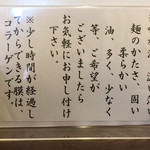 麺のかたさ、固い
柔らかい
油、多く、少なく
等、ご希望が
ございましたら
お気軽にお申し付け
下さい。
※少し時間が経過し
てからできる膜は、
コラーゲンです。